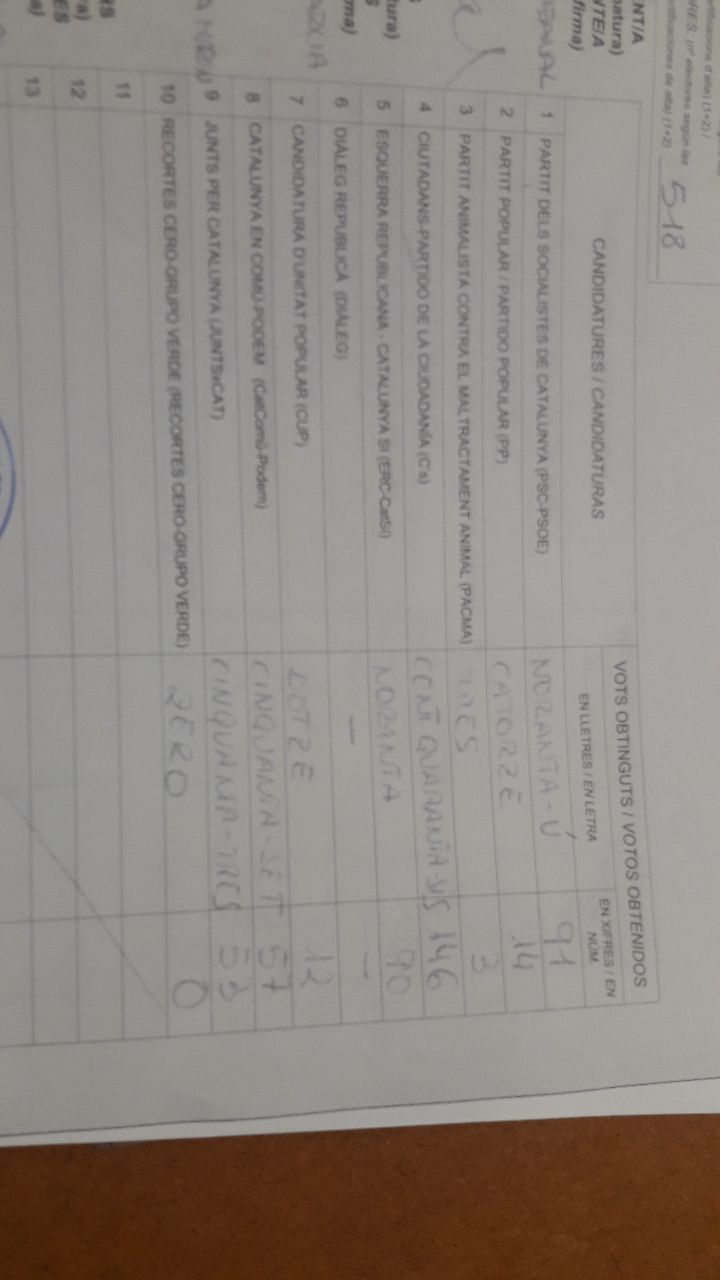 518
CANDIDATURES / CANDIDATURAS
VOTS OBTINGUTS / VOTOS OBTENIDOS
EN LLETRES / EN LETRA
EN XIFRES / EN NÚM.
1 PARTIT DELS SOCIALISTES DE CATALUNYA (PSC-PSOE) NORANTA-Ú 91
2 PARTIT POPULAR / PARTIDO POPULAR (PP) CATORZE 14
3 PARTIT ANIMALISTA CONTRA EL MALTRACTAMENT ANIMAL (PACMA) TRES 3
4 CIUTADANS-PARTIDO DE LA CIUDADANÍA (C's) CENT QUARANTA-SIS 146
5 ESQUERRA REPUBLICANA - CATALUNYA SÍ (ERC-CatSí) NORANTA 90
6 DIÀLEG REPUBLICÀ (DIÀLEG) — —
7 CANDIDATURA D'UNITAT POPULAR (CUP) DOTZE 12
8 CATALUNYA EN COMÚ-PODEM (CatComú-Podem) CINQUANTA-SET 57
9 JUNTS PER CATALUNYA (JUNTSxCAT) CINQUANTA-TRES 53
10 RECORTES CERO-GRUPO VERDE (RECORTES CERO-GRUPO VERDE) ZERO 0
11
12
13